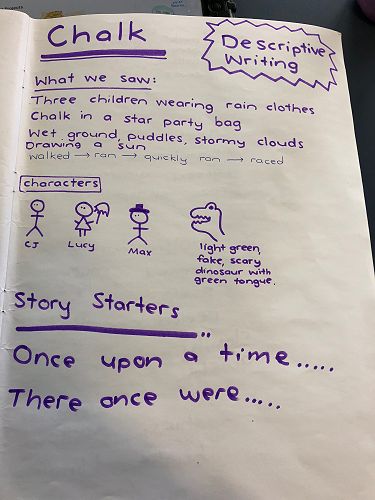 Chalk
Descriptive
Writing
What we saw:
Three children wearing rain clothes
Chalk in a star party bag
Wet ground, puddles, stormy clouds
Drawing a sun
walked → ran → quickly ran → raced
characters
CJ
Lucy
Max
light green,
fake, scary
dinosaur with
green tongue.
Story Starters
Once upon a time.....
There once were.....